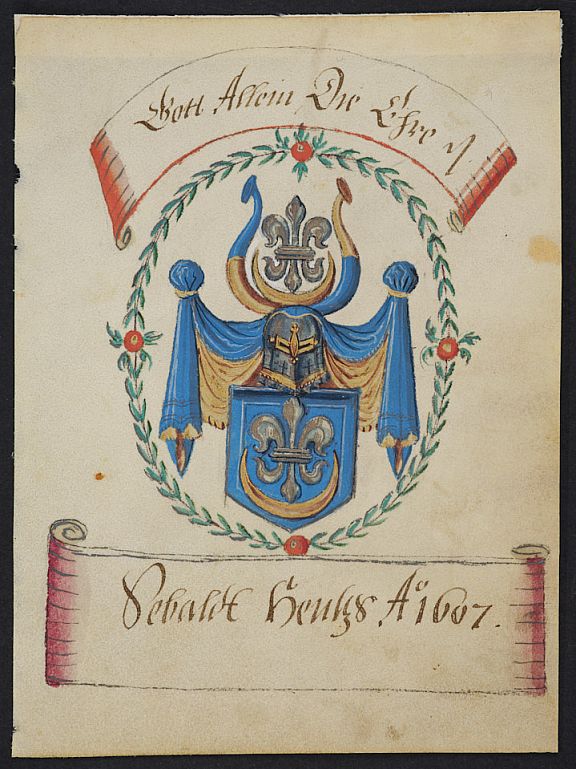 Gott Allein Die Ehre
Sebaldt Hentzs Aº 1607.